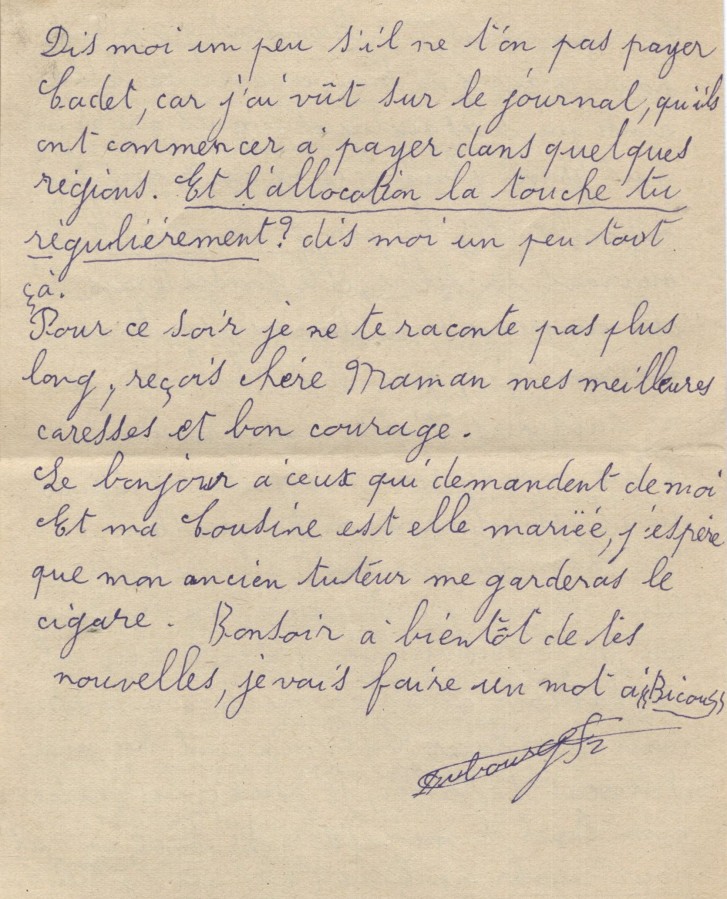 Dis moi un peu s'il ne t'on pas payer
Cadet, car j'ai vût sur le journal, qu'ils
ont commencer à payer dans quelques
régions. Et l'allocation la touche tu
régulièrement? dis moi un peu tout
çà.
Pour ce soir je ne te raconte pas plus
long, reçois chére Maman mes meilleures
caresses et bon courage.
Le bonjour à ceux qui demandent de moi
Et ma Cousine est elle mariëé, j'espère
que mon ancien tutéur me garderas le
cigare. Bonsoir à bientôt de tes
nouvelles, je vais faire un mot à "Bicou"